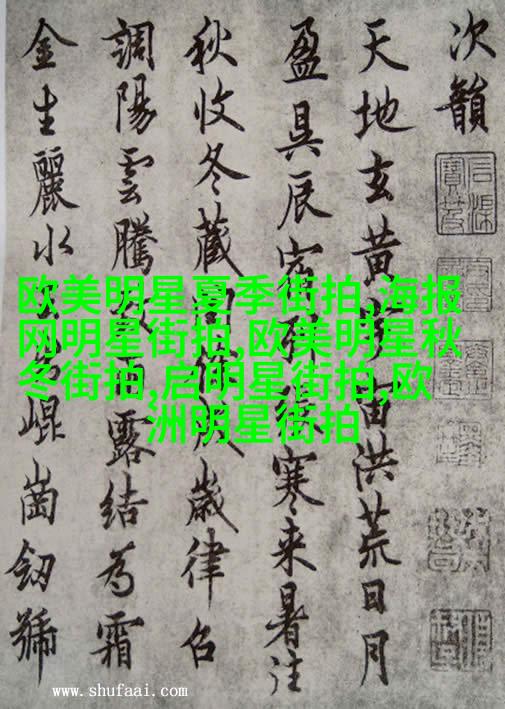 次韻
天地玄黄宙洪荒日月
盈昃辰宿列張寒来暑往
秋收冬藏閏餘成歲律召
調陽雲騰致雨露結為霜
金生麗水出崐崗劒號
欧美明星夏季街拍,海报
网明星街拍,欧美明星秋
冬街拍,启明星街拍,欧
洲明星街拍
www.shufaai.com